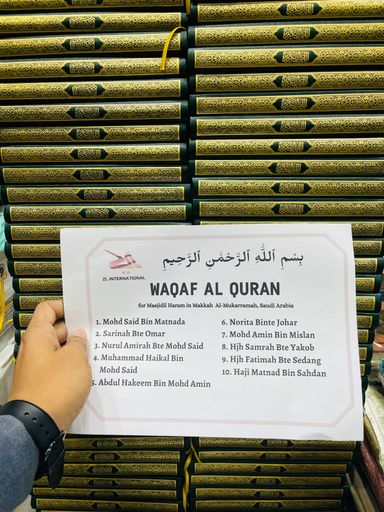 بِسْمِ اللَّهِ الرَّحْمَٰنِ الرَّحِيمِ
ZL INTERNATIONAL
WAQAF AL QURAN
for Masjidil Haram in Makkah Al-Mukarramah, Saudi Arabia
1. Mohd Said Bin Matnada
2. Sarinah Bte Omar
3. Nurul Amirah Bte Mohd Said
4. Muhammad Haikal Bin
Mohd Said
5. Abdul Hakeem Bin Mohd Amin
6. Norita Binte Johar
7. Mohd Amin Bin Mislan
8. Hjh Samrah Bte Yakob
9. Hjh Fatimah Bte Sedang
10. Haji Matnad Bin Sahdan